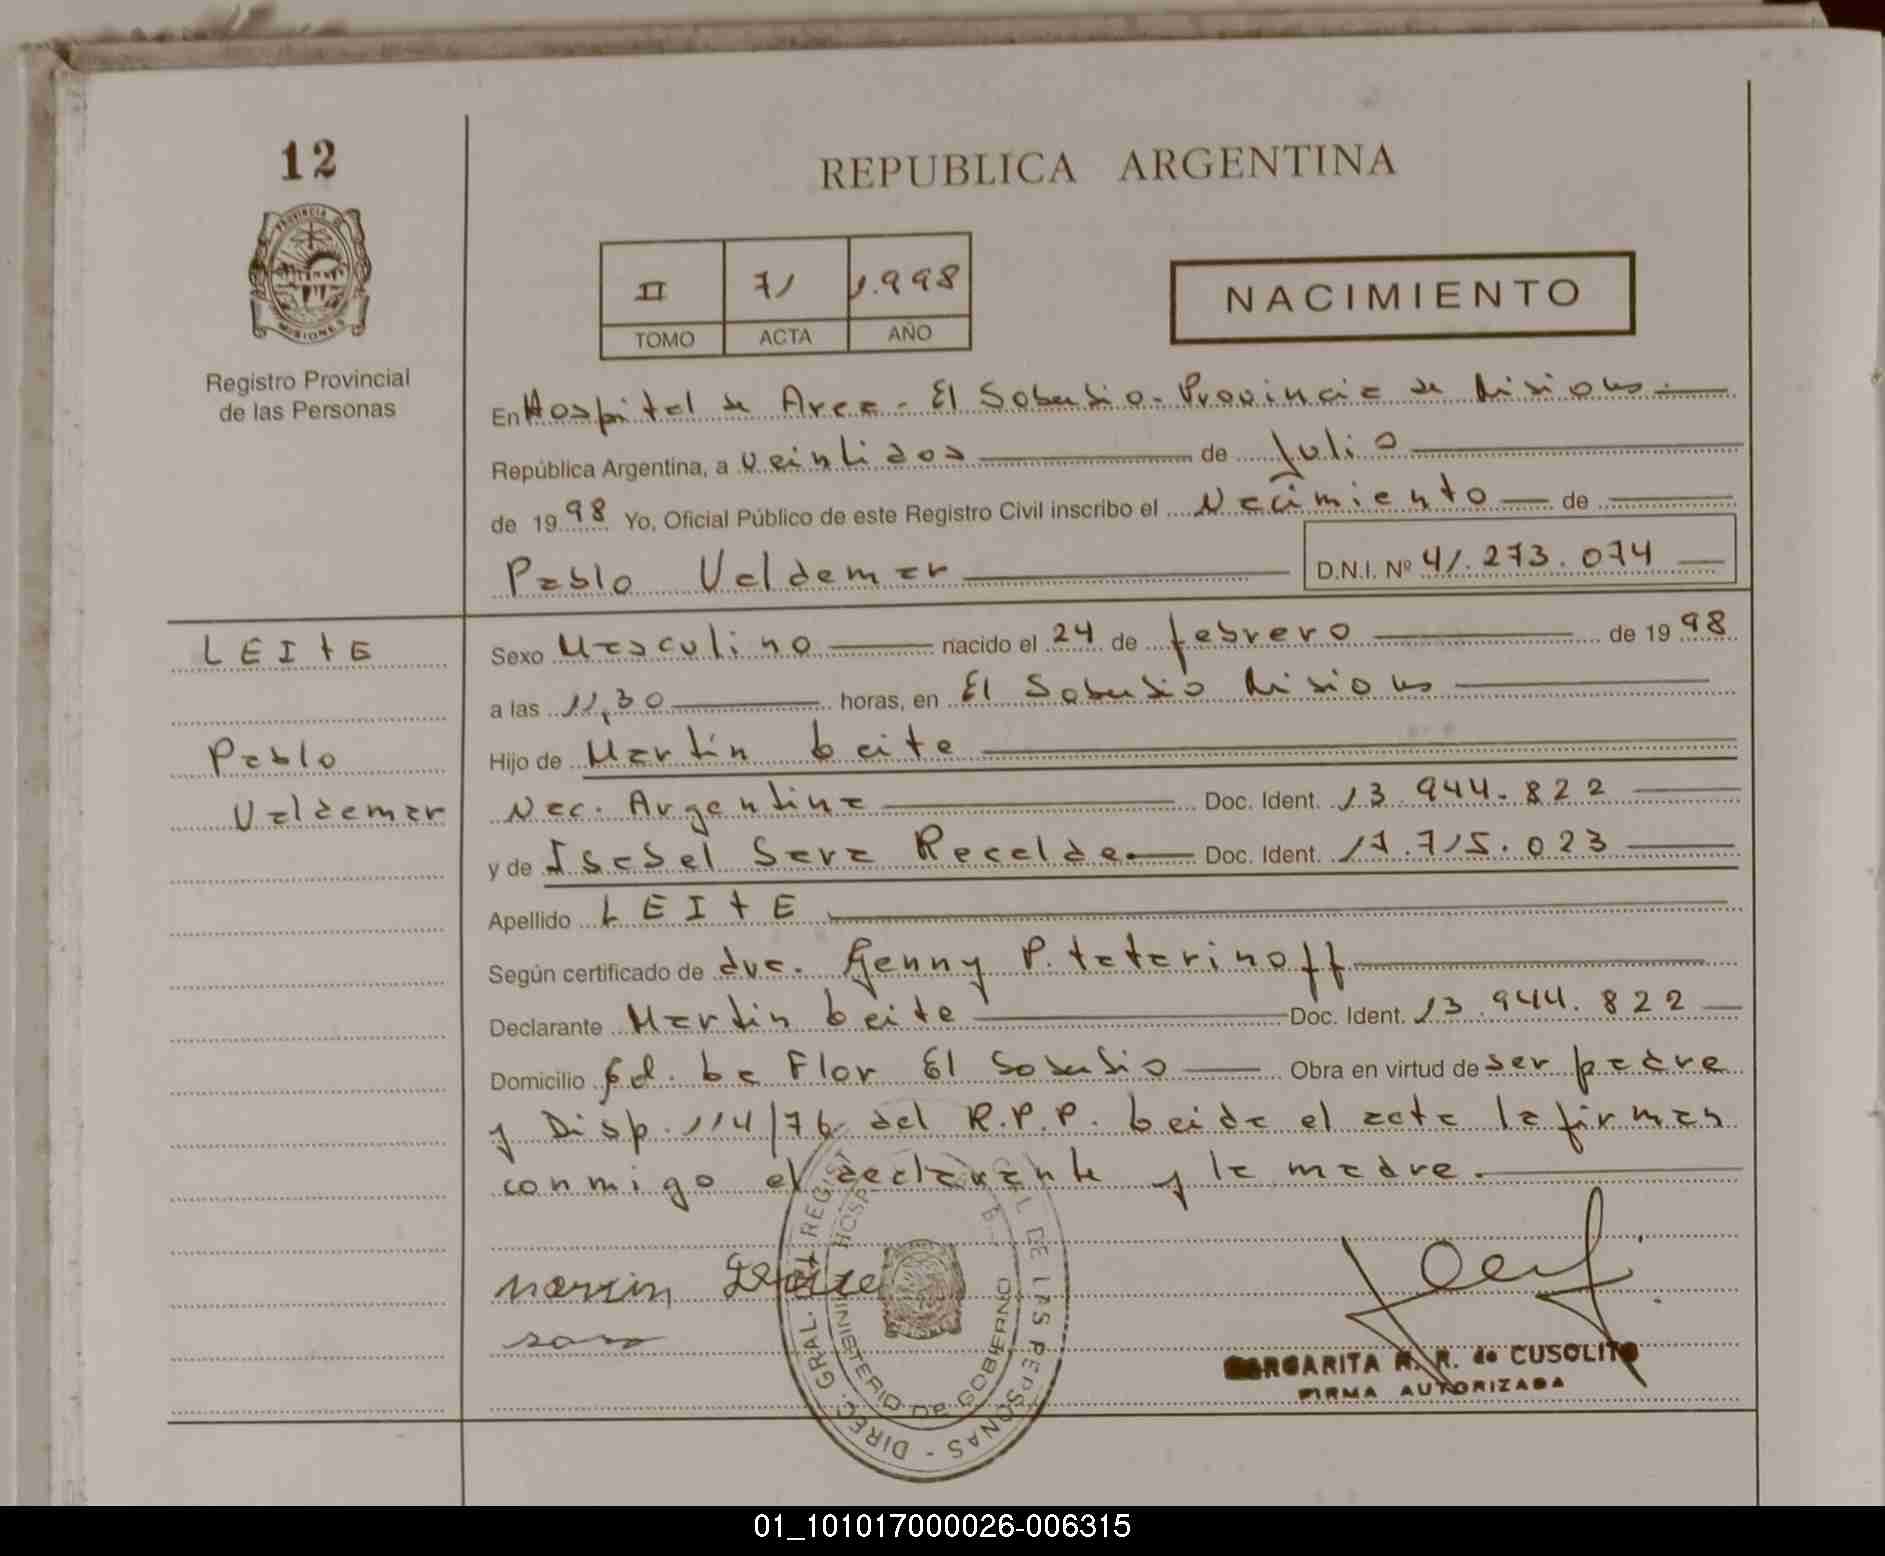 12
REPUBLICA ARGENTINA
PROVINCIA DE MISIONES
Registro Provincial
de las Personas
II 71 1.998
TOMO ACTA AÑO
NACIMIENTO
En Hospital de Area - El Soberbio - Provincia de Misiones
República Argentina, a veintidos de Julio
de 1998 Yo, Oficial Público de este Registro Civil inscribo el Nacimiento de
Pablo Valdemar D.N.I. Nº 41.273.074
LEItE
Pablo
Valdemar
Sexo Masculino nacido el 24 de febrero de 1998
a las 11,30 horas, en El Soberbio Misiones
Hijo de Martín Leite
Nac. Argentina Doc. Ident. 13 944.822
y de Isabel Sara Recalde Doc. Ident. 17.715.023
Apellido LEItE
Según certificado de dra. Genny P. tatarinoff
Declarante Martín Leite Doc. Ident. 13.944.822
Domicilio Cd. La Flor El Soberbio Obra en virtud de ser padre
y Disp. 114/76 del R.P.P. Leida el acta la firman
conmigo el declarante y la madre.
martin Leite
sara
DIREC. GRAL. DEL REGIST DE LAS PERSONAS -
MINISTERIO DE GOBIERNO
MARGARITA R. R. de CUSOLITO
FIRMA AUTORIZADA
01_101017000026-006315